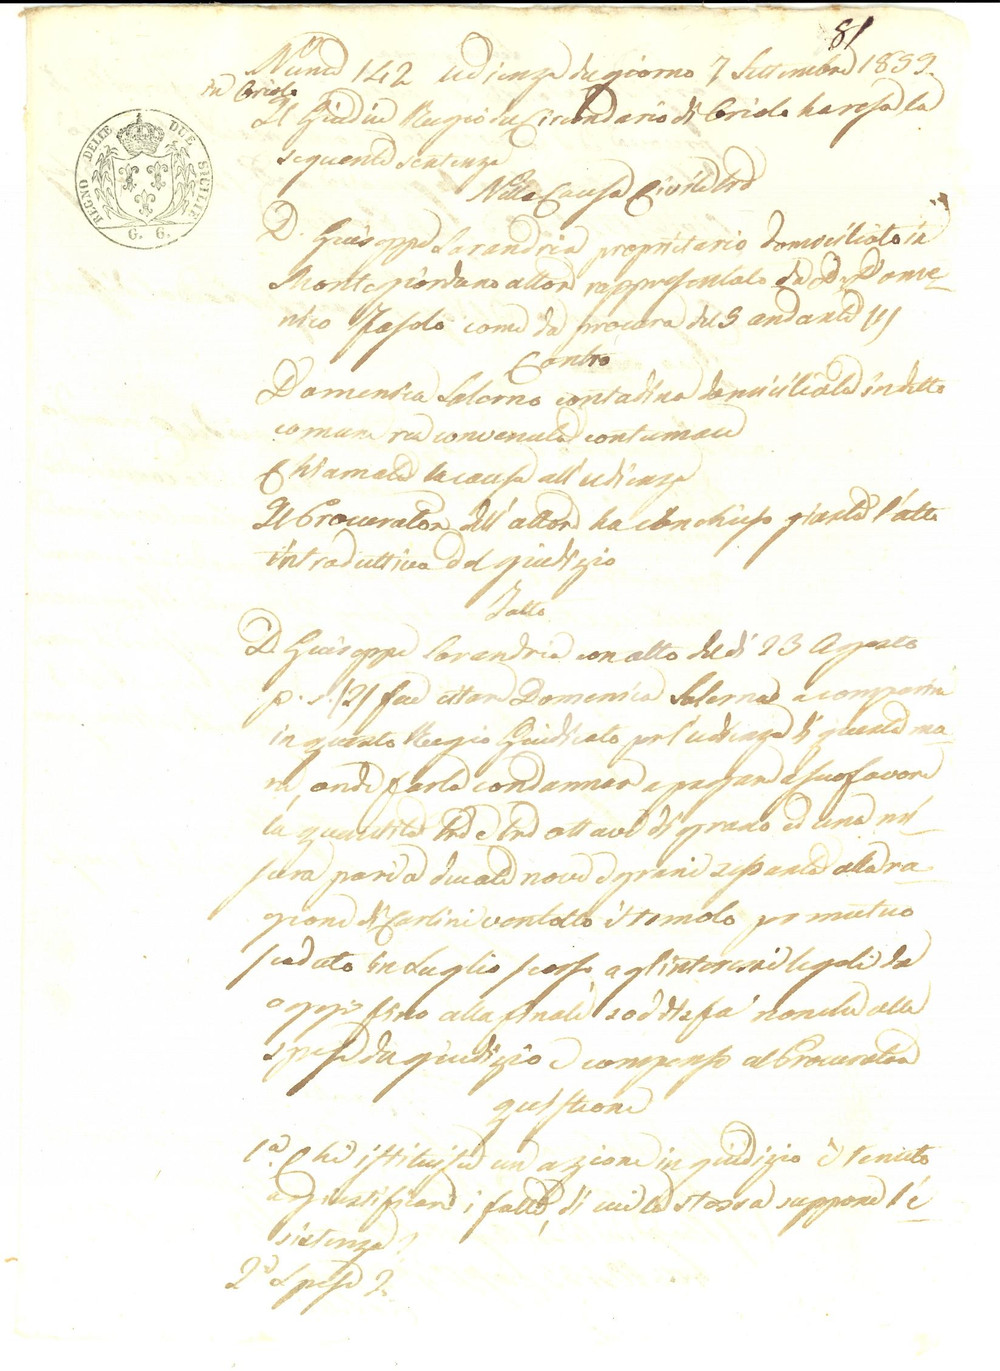 81
Num.o 142 Udienza del giorno 7 Settembre 1853.
in Oriolo
REGNO DELLE DUE SICILIE
G. 6.
Il Giudice Reggio del Circondario di Oriolo ha resa la
seguente sentenza
Nella Causa Civile tra
D. Giuseppe Larandria proprietario domiciliato in
Montegiordano attore rappresentato da D. Dome-
nico Fasolo come da procura del 5 andante (1)
Contro
Domenica Salerno contadina domiciliata in detto
comune rea convenuta contumace
Chiamata la causa all'udienza
Il Procuratore dell'attore ha conchiuso giusta l'atto
introduttivo del giudizio
Fatto
D. Giuseppe Larandria con atto del dì 23 Agosto
p. s. (2) fece citare Domenica Salerno a comparire
in questo Reggio Giudicato per l'udienza di giorni
onde farla condannare a pagare a suo favore
la quantità tre e tre ottavi di grano ed una mi-
sura pari a ducati nove e grani sessanta alla ra-
gione di Carlini ventotto il tomolo per mutuo
scaduto in Luglio scorso agl'interessi legali da
oggi fino alla finale soddisfa nonché alle
spese del giudizio e compenso al Procuratore
Quistione
1.a Chi istituisce un azione in giudizio è tenuto
a giustificare i fatti, di cui la stessa suppone l'e-
sistenza?
2.a Spese?